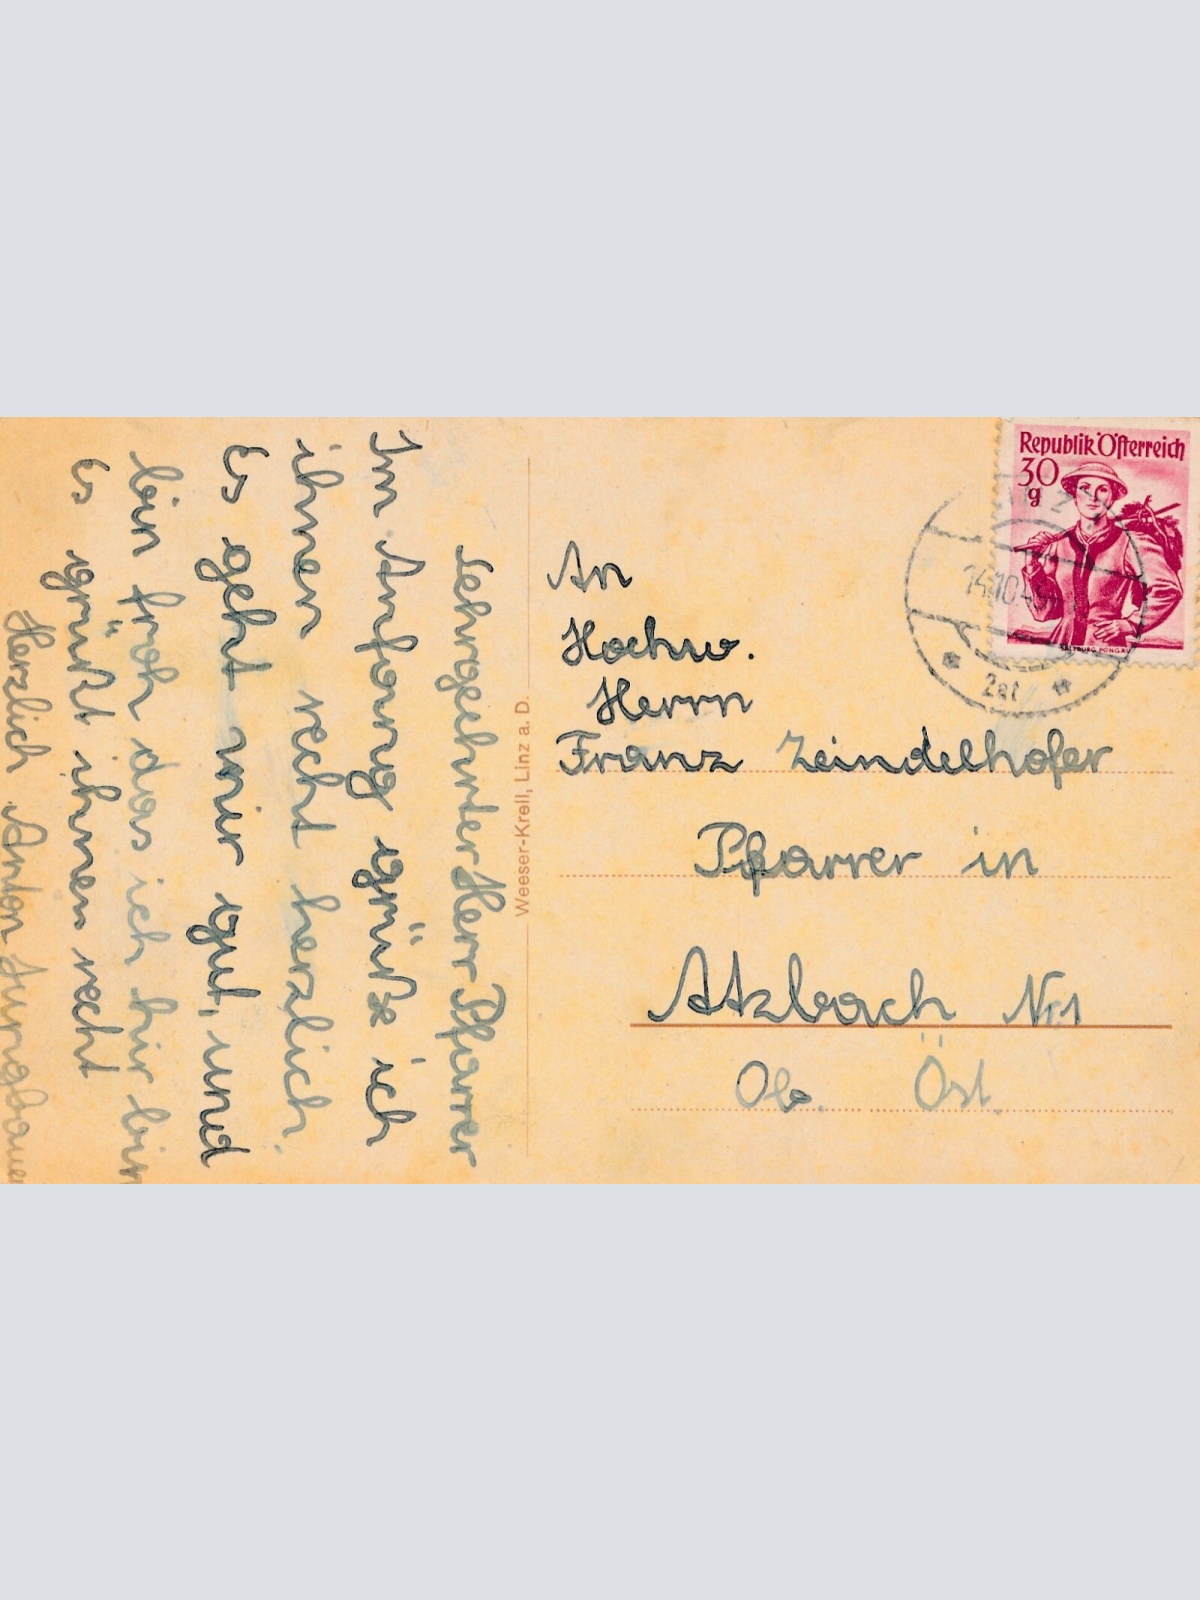 Sehrgeehrter Herr Pfarrer
Im Anfang grüße ich
ihnen recht herzlich.
Es geht mir gut, und
bin froh das ich hir bin
Es grüßt ihnen recht
Herzlich Anton Jungbauer
Weeser-Krell, Linz a. D.
Republik Österreich
30
g
SALZBURG, PONGAU
14.10.49
2at
An
Hochw.
Herrn
Franz Zeindelhofer
Pfarrer in
Atzbach Nr.1
Ob. Öst.